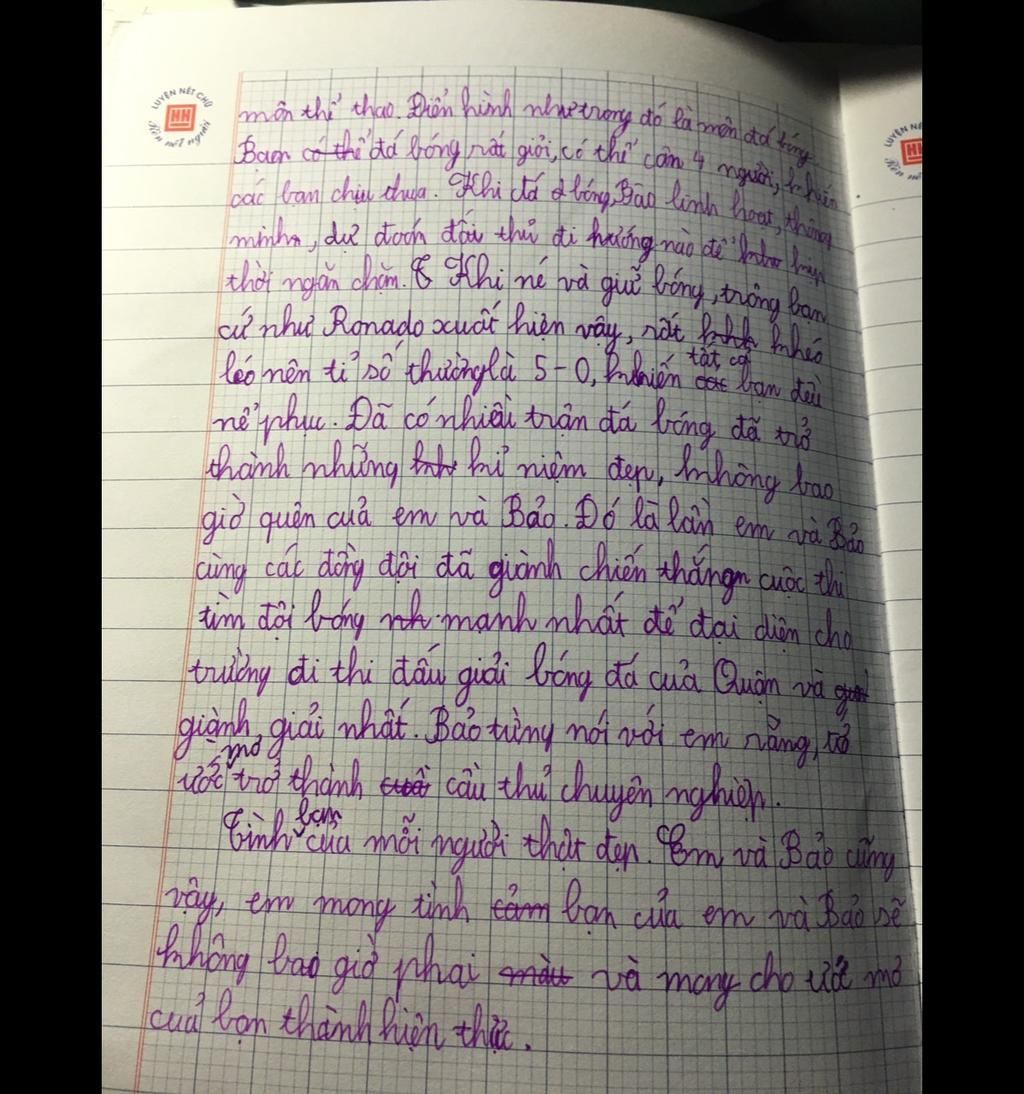 LUYỆN NÉT CHỮ
HH
Rèn nết người
LUYỆN NÉ
môn thể thao. Điển hình như trong đó là môn đá bóng
Bạn có thể đá bóng rất giỏi, có thể cân 4 người, khiến
các bạn chịu thua. Khi đá bóng, Bảo linh hoạt, thông
minh, dự đoán đối thủ đi hướng nào để kịp
thời ngăn chặn. Khi né và giữ bóng, trông bạn
cứ như Ronado xuất hiện vậy, rất khéo
léo nên tỉ số thường là 5-0, khiến tất cả bạn đều
nể phục. Đã có nhiều trận đá bóng đã trở
thành những kỉ niệm đẹp, không bao
giờ quên của em và Bảo. Đó là lần em và Bảo
cùng các đồng đội đã giành chiến thắng cuộc thi
tìm đội bóng mạnh nhất để đại diện cho
trường đi thi đấu giải bóng đá của Quận và
giành giải nhất. Bảo từng nói với em rằng,
ước mơ trở thành cầu thủ chuyên nghiệp.
Tình bạn của mỗi người thật đẹp. Em và Bảo cũng
vậy, em mong tình cảm bạn của em và Bảo sẽ
không bao giờ phai màu và mong cho ước mơ
của bạn thành hiện thực.